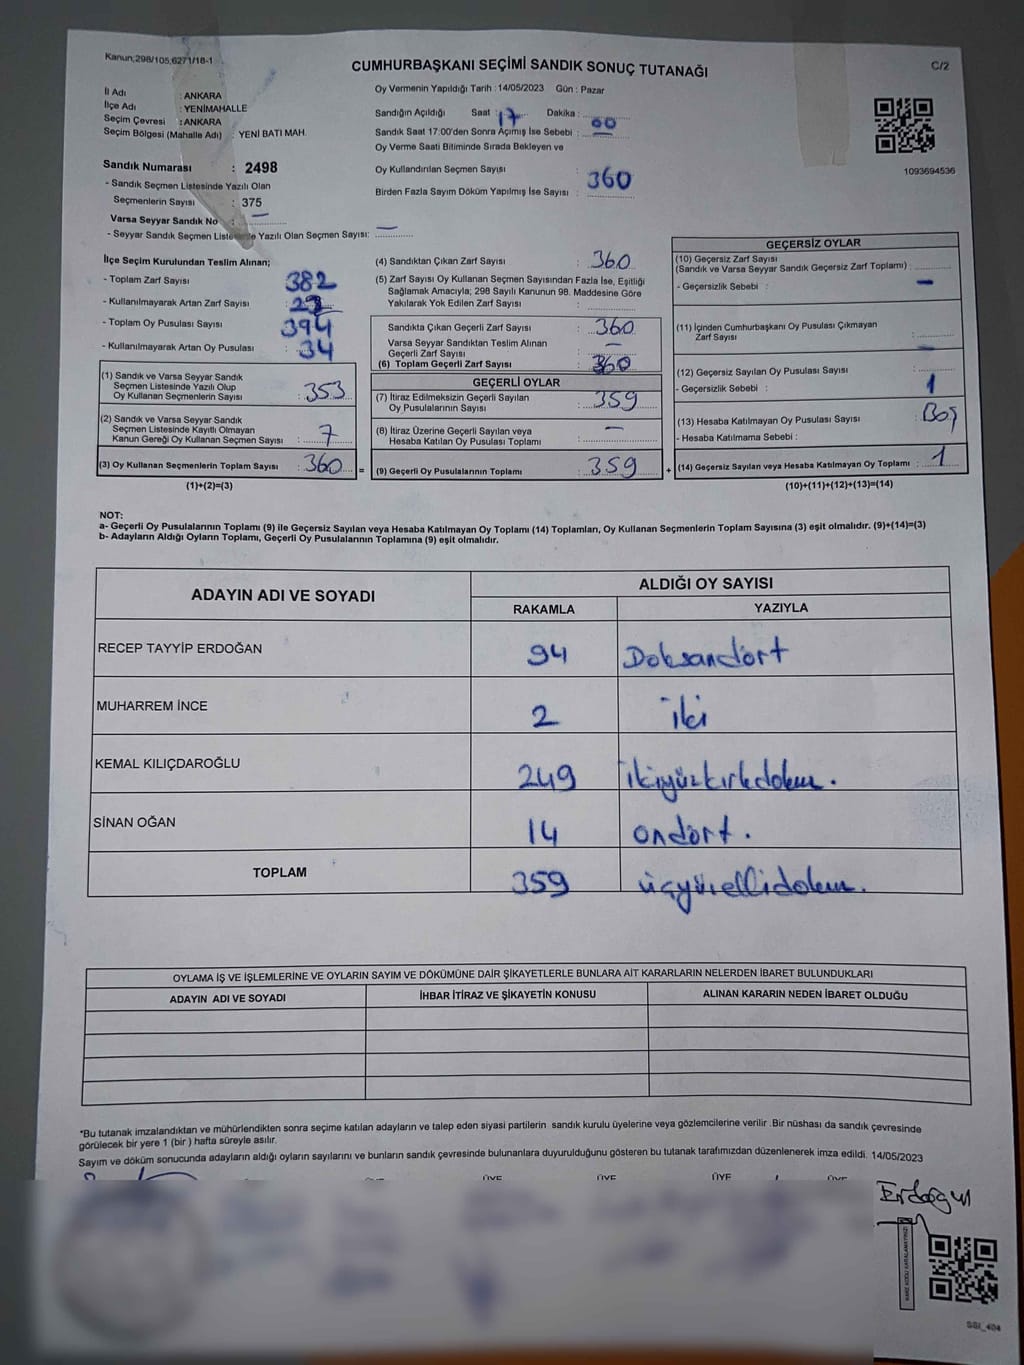 Kanun;298/105,6271/18-1
CUMHURBAŞKANI SEÇİMİ SANDIK SONUÇ TUTANAĞI
C/2
İl Adı : ANKARA
İlçe Adı : YENİMAHALLE
Seçim Çevresi : ANKARA
Seçim Bölgesi (Mahalle Adı) : YENİ BATI MAH.
Oy Vermenin Yapıldığı Tarih : 14/05/2023 Gün : Pazar
Sandığın Açıldığı Saat : 17 Dakika : 00
Sandık Saat 17:00'den Sonra Açımış İse Sebebi : —
Oy Verme Saati Bitiminde Sırada Bekleyen ve
Oy Kullandırılan Seçmen Sayısı : 360
Birden Fazla Sayım Döküm Yapılmış İse Sayısı :
1093694536
Sandık Numarası : 2498
- Sandık Seçmen Listesinde Yazılı Olan
Seçmenlerin Sayısı : 375
Varsa Seyyar Sandık No : —
- Seyyar Sandık Seçmen Listesinde Yazılı Olan Seçmen Sayısı: —
İlçe Seçim Kurulundan Teslim Alınan;
- Toplam Zarf Sayısı : 382
- Kullanılmayarak Artan Zarf Sayısı :
- Toplam Oy Pusulası Sayısı : 394
- Kullanılmayarak Artan Oy Pusulası : 34
(1) Sandık ve Varsa Seyyar Sandık
Seçmen Listesinde Yazılı Olup
Oy Kullanan Seçmenlerin Sayısı : 353
(2) Sandık ve Varsa Seyyar Sandık
Seçmen Listesinde Kayıtlı Olmayan
Kanun Gereği Oy Kullanan Seçmen Sayısı : 7
(3) Oy Kullanan Seçmenlerin Toplam Sayısı : 360 =
(1)+(2)=(3)
(4) Sandıktan Çıkan Zarf Sayısı : 360
(5) Zarf Sayısı Oy Kullanan Seçmen Sayısından Fazla İse, Eşitliği
Sağlamak Amacıyla; 298 Sayılı Kanunun 98. Maddesine Göre
Yakılarak Yok Edilen Zarf Sayısı :
Sandıkta Çıkan Geçerli Zarf Sayısı : 360
Varsa Seyyar Sandıktan Teslim Alınan
Geçerli Zarf Sayısı : —
(6) Toplam Geçerli Zarf Sayısı : 360
GEÇERLİ OYLAR
(7) İtiraz Edilmeksizin Geçerli Sayılan
Oy Pusulalarının Sayısı : 359
(8) İtiraz Üzerine Geçerli Sayılan veya
Hesaba Katılan Oy Pusulası Toplamı : —
(9) Geçerli Oy Pusulalarının Toplamı : 359 +
GEÇERSİZ OYLAR
(10) Geçersiz Zarf Sayısı
(Sandık ve Varsa Seyyar Sandık Geçersiz Zarf Toplamı) :
- Geçersizlik Sebebi : —
(11) İçinden Cumhurbaşkanı Oy Pusulası Çıkmayan
Zarf Sayısı : —
(12) Geçersiz Sayılan Oy Pusulası Sayısı :
- Geçersizlik Sebebi : 1
(13) Hesaba Katılmayan Oy Pusulası Sayısı : Boş
- Hesaba Katılmama Sebebi :
(14) Geçersiz Sayılan veya Hesaba Katılmayan Oy Toplamı : 1
(10)+(11)+(12)+(13)=(14)
NOT:
a- Geçerli Oy Pusulalarının Toplamı (9) ile Geçersiz Sayılan veya Hesaba Katılmayan Oy Toplamı (14) Toplamları, Oy Kullanan Seçmenlerin Toplam Sayısına (3) eşit olmalıdır. (9)+(14)=(3)
b- Adayların Aldığı Oyların Toplamı, Geçerli Oy Pusulalarının Toplamına (9) eşit olmalıdır.
ADAYIN ADI VE SOYADI ALDIĞI OY SAYISI
RAKAMLA YAZIYLA
RECEP TAYYİP ERDOĞAN 94 Doksandört
MUHARREM İNCE 2 iki
KEMAL KILIÇDAROĞLU 249 ikiyüzkırkdokuz.
SİNAN OĞAN 14 ondört.
TOPLAM 359 üçyüzellidokuz.
OYLAMA İŞ VE İŞLEMLERİNE VE OYLARIN SAYIM VE DÖKÜMÜNE DAİR ŞİKAYETLERLE BUNLARA AİT KARARLARIN NELERDEN İBARET BULUNDUKLARI
ADAYIN ADI VE SOYADI İHBAR İTİRAZ VE ŞİKAYETİN KONUSU ALINAN KARARIN NEDEN İBARET OLDUĞU
*Bu tutanak imzalandıktan ve mühürlendikten sonra seçime katılan adayların ve talep eden siyasi partilerin sandık kurulu üyelerine veya gözlemcilerine verilir. Bir nüshası da sandık çevresinde
görülecek bir yere 1 (bir) hafta süreyle asılır.
Sayım ve döküm sonucunda adayların aldığı oyların sayılarını ve bunların sandık çevresinde bulunanlara duyurulduğunu gösteren bu tutanak tarafımızdan düzenlenerek imza edildi. 14/05/2023
ÜYE ÜYE ÜYE ÜYE
Erdoğan
KARE KODU KARALAMAYINIZ!
SBI_404